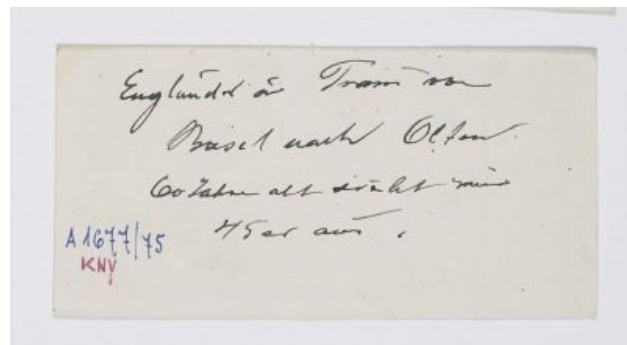 Engländer in Train von
Basel nach Olten.
60 Jahre alt sieht wie
45er aus.
A 1677/75
KNY